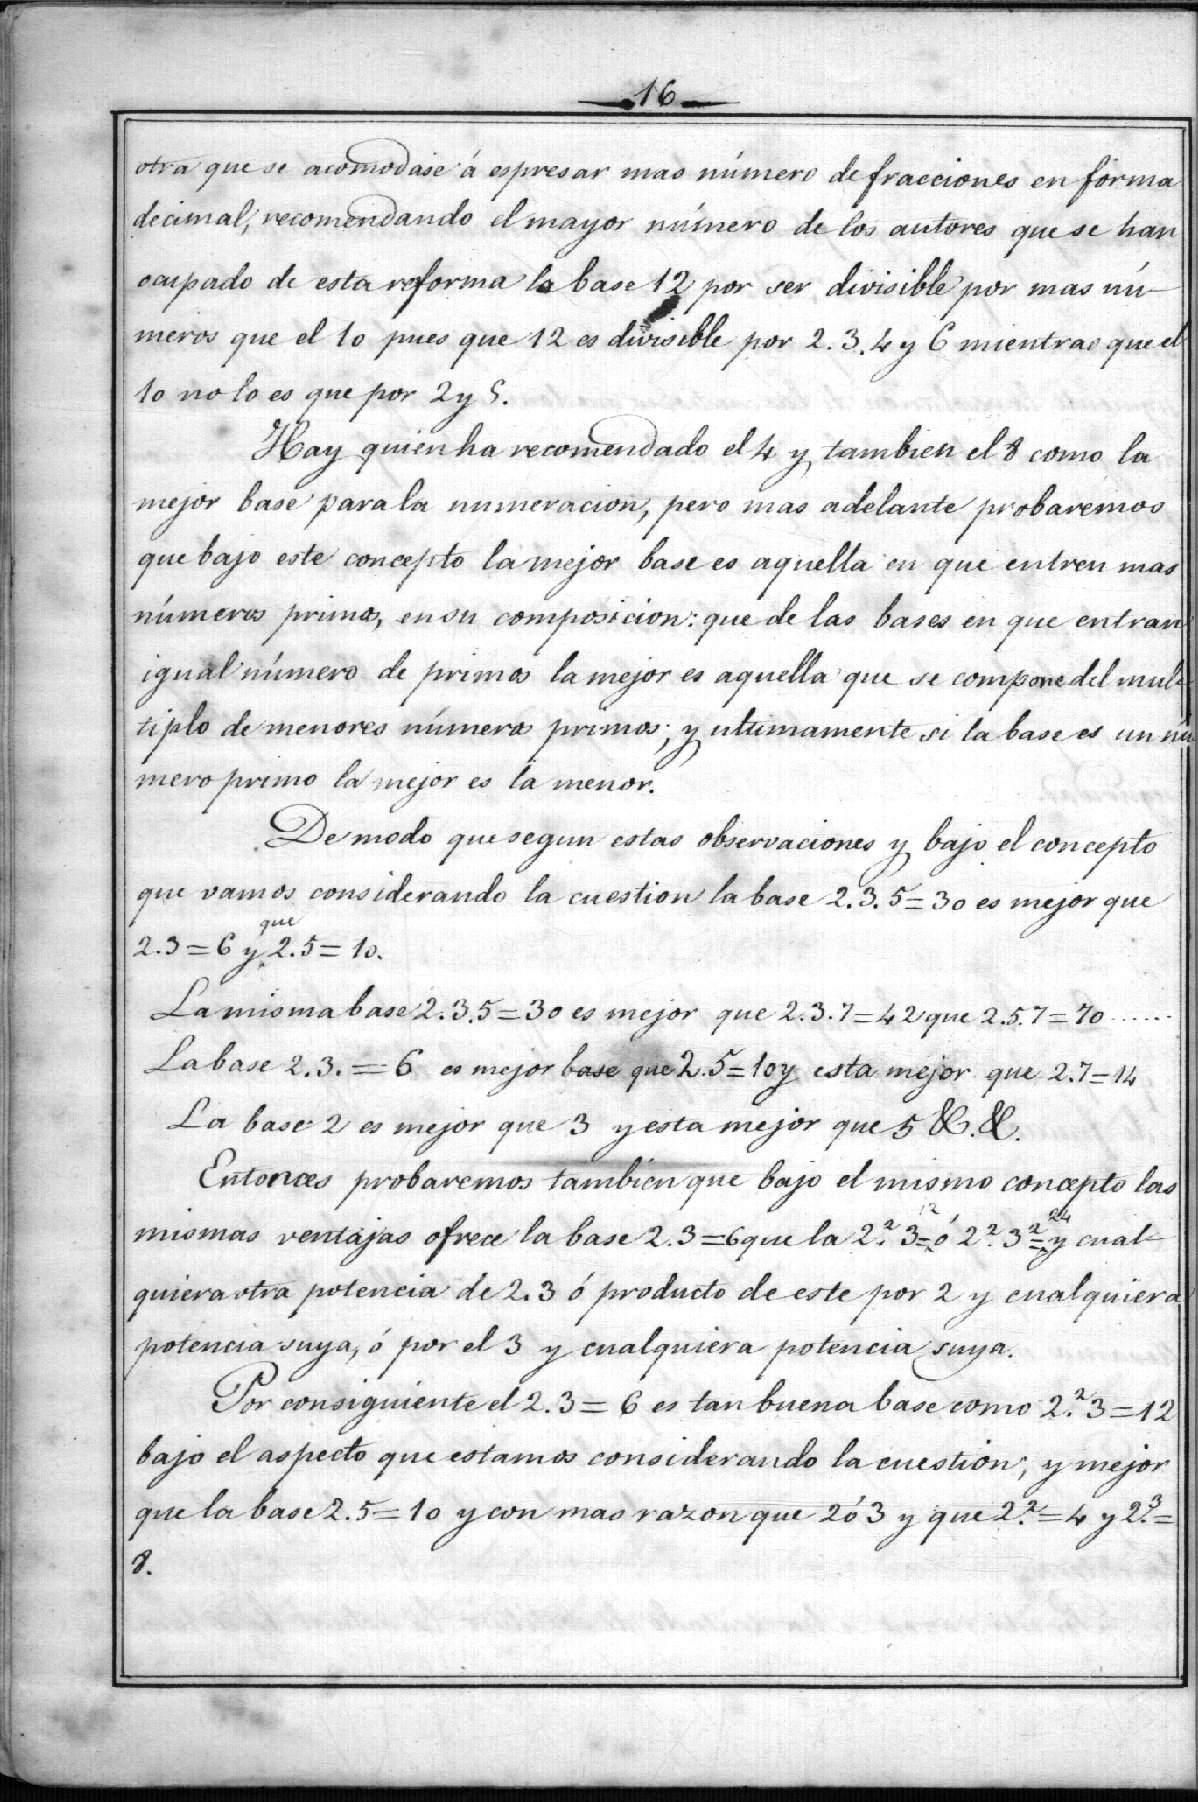 16
otra que se acomodase á espresar mas número de fracciones en forma
decimal; recomendando el mayor número de los autores que se han
ocupado de esta reforma la base 12 por ser divisible por mas nú-
meros que el 10 pues que 12 es divisible por 2. 3. 4 y 6 mientras que el
10 no lo es que por 2 y 5.
Hay quien ha recomendado el 4 y tambien el 8 como la
mejor base para la numeracion, pero mas adelante probaremos
que bajo este concepto la mejor base es aquella en que entren mas
números primos, en su composicion: que de las bases en que entran
igual número de primos la mejor es aquella que se compone del mul-
tiplo de menores números primos; y ultimamente si la base es un nú-
mero primo la mejor es la menor.
De modo que segun estas observaciones y bajo el concepto
que vamos considerando la cuestion la base 2.3.5=30 es mejor que
2.3=6 y que 2.5=10.
La misma base 2.3.5=30 es mejor que 2.3.7=42 que 2.5.7=70......
La base 2.3.=6 es mejor base que 2.5=10 y esta mejor que 2.7=14
La base 2 es mejor que 3 y esta mejor que 5 &. &.
Entonces probaremos tambien que bajo el mismo concepto las
mismas ventajas ofrece la base 2.3=6 que la 2².3=12 ó 2².3²=24 y cual-
quiera otra potencia de 2.3 ó producto de este por 2 y cualquiera
potencia suya, ó por el 3 y cualquiera potencia suya.
Por consiguiente el 2.3=6 es tan buena base como 2².3=12
bajo el aspecto que estamos considerando la cuestion; y mejor
que la base 2.5=10 y con mas razon que 2 ó 3 y que 2².=4 y 2³.=
8.